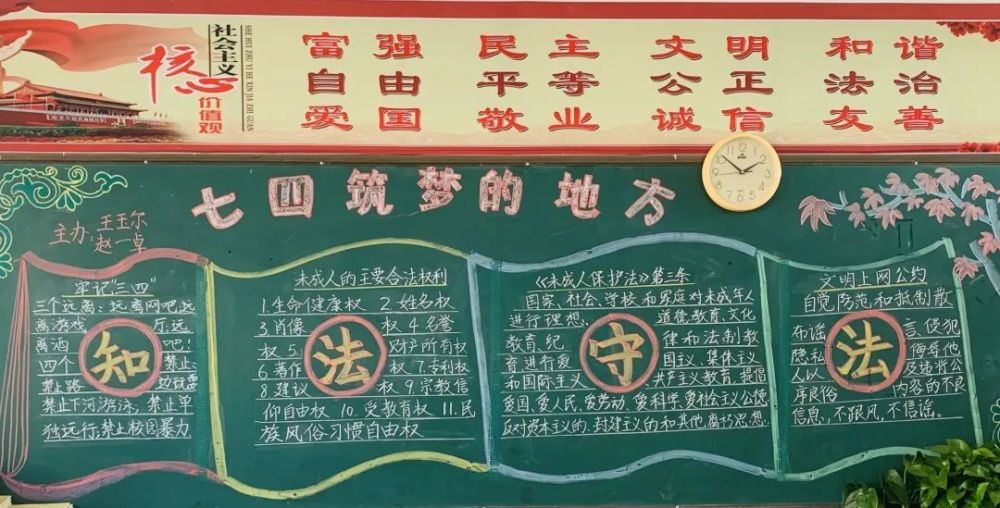 社会主义
核心
价值观
SHE HUI ZHU YI HE XIN JIA ZHI GUAN
富强 民主 文明 和谐
自由 平等 公正 法治
爱国 敬业 诚信 友善
七四筑梦的地方
主办:王玉尔
赵一卓
牢记"三四"
三个远离:远离网吧,远
离游戏 厅,远
离酒 吧!
四个 禁止:
禁止
禁止下河游泳,禁止单
独远行,禁止校园暴力
知
未成人的主要合法权利
1.生命健康权 2.姓名权
3.肖像 权 4.名誉
权 5. 所有权
6.著作 权 7.专利权
8.建议 权 9.宗教信
仰自由权 10.受教育权 11.民
族风俗习惯自由权
法
《未成人保护法》第三条
国家、社会、学校和家庭对未成年人
进行理想、 道德教育、文化
教育、纪 律和法制教
育进行爱 国主义、集体主义
和国际主义 、共产主义教育,提倡
爱国、爱人民、爱劳动、爱科学、爱社会主义公德
反对资本主义的、封建主义的和其他腐朽思想.
守
文明上网公约
自觉防范和抵制散
布谣 言,侵犯
隐私 侮辱他
人以 及违背公
序良俗 内容的不良
信息,不跟风,不信谣。
法